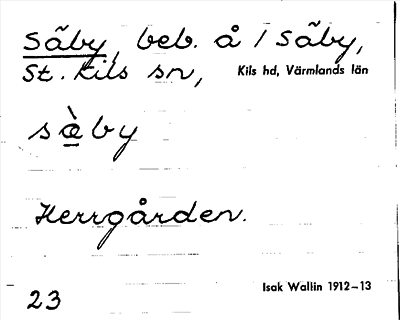 Säby, beb. å / Säby,
St. Kils sn, Kils hd, Värmlands län
sæ̀by
Herrgården.
Isak Wallin 1912-13
23